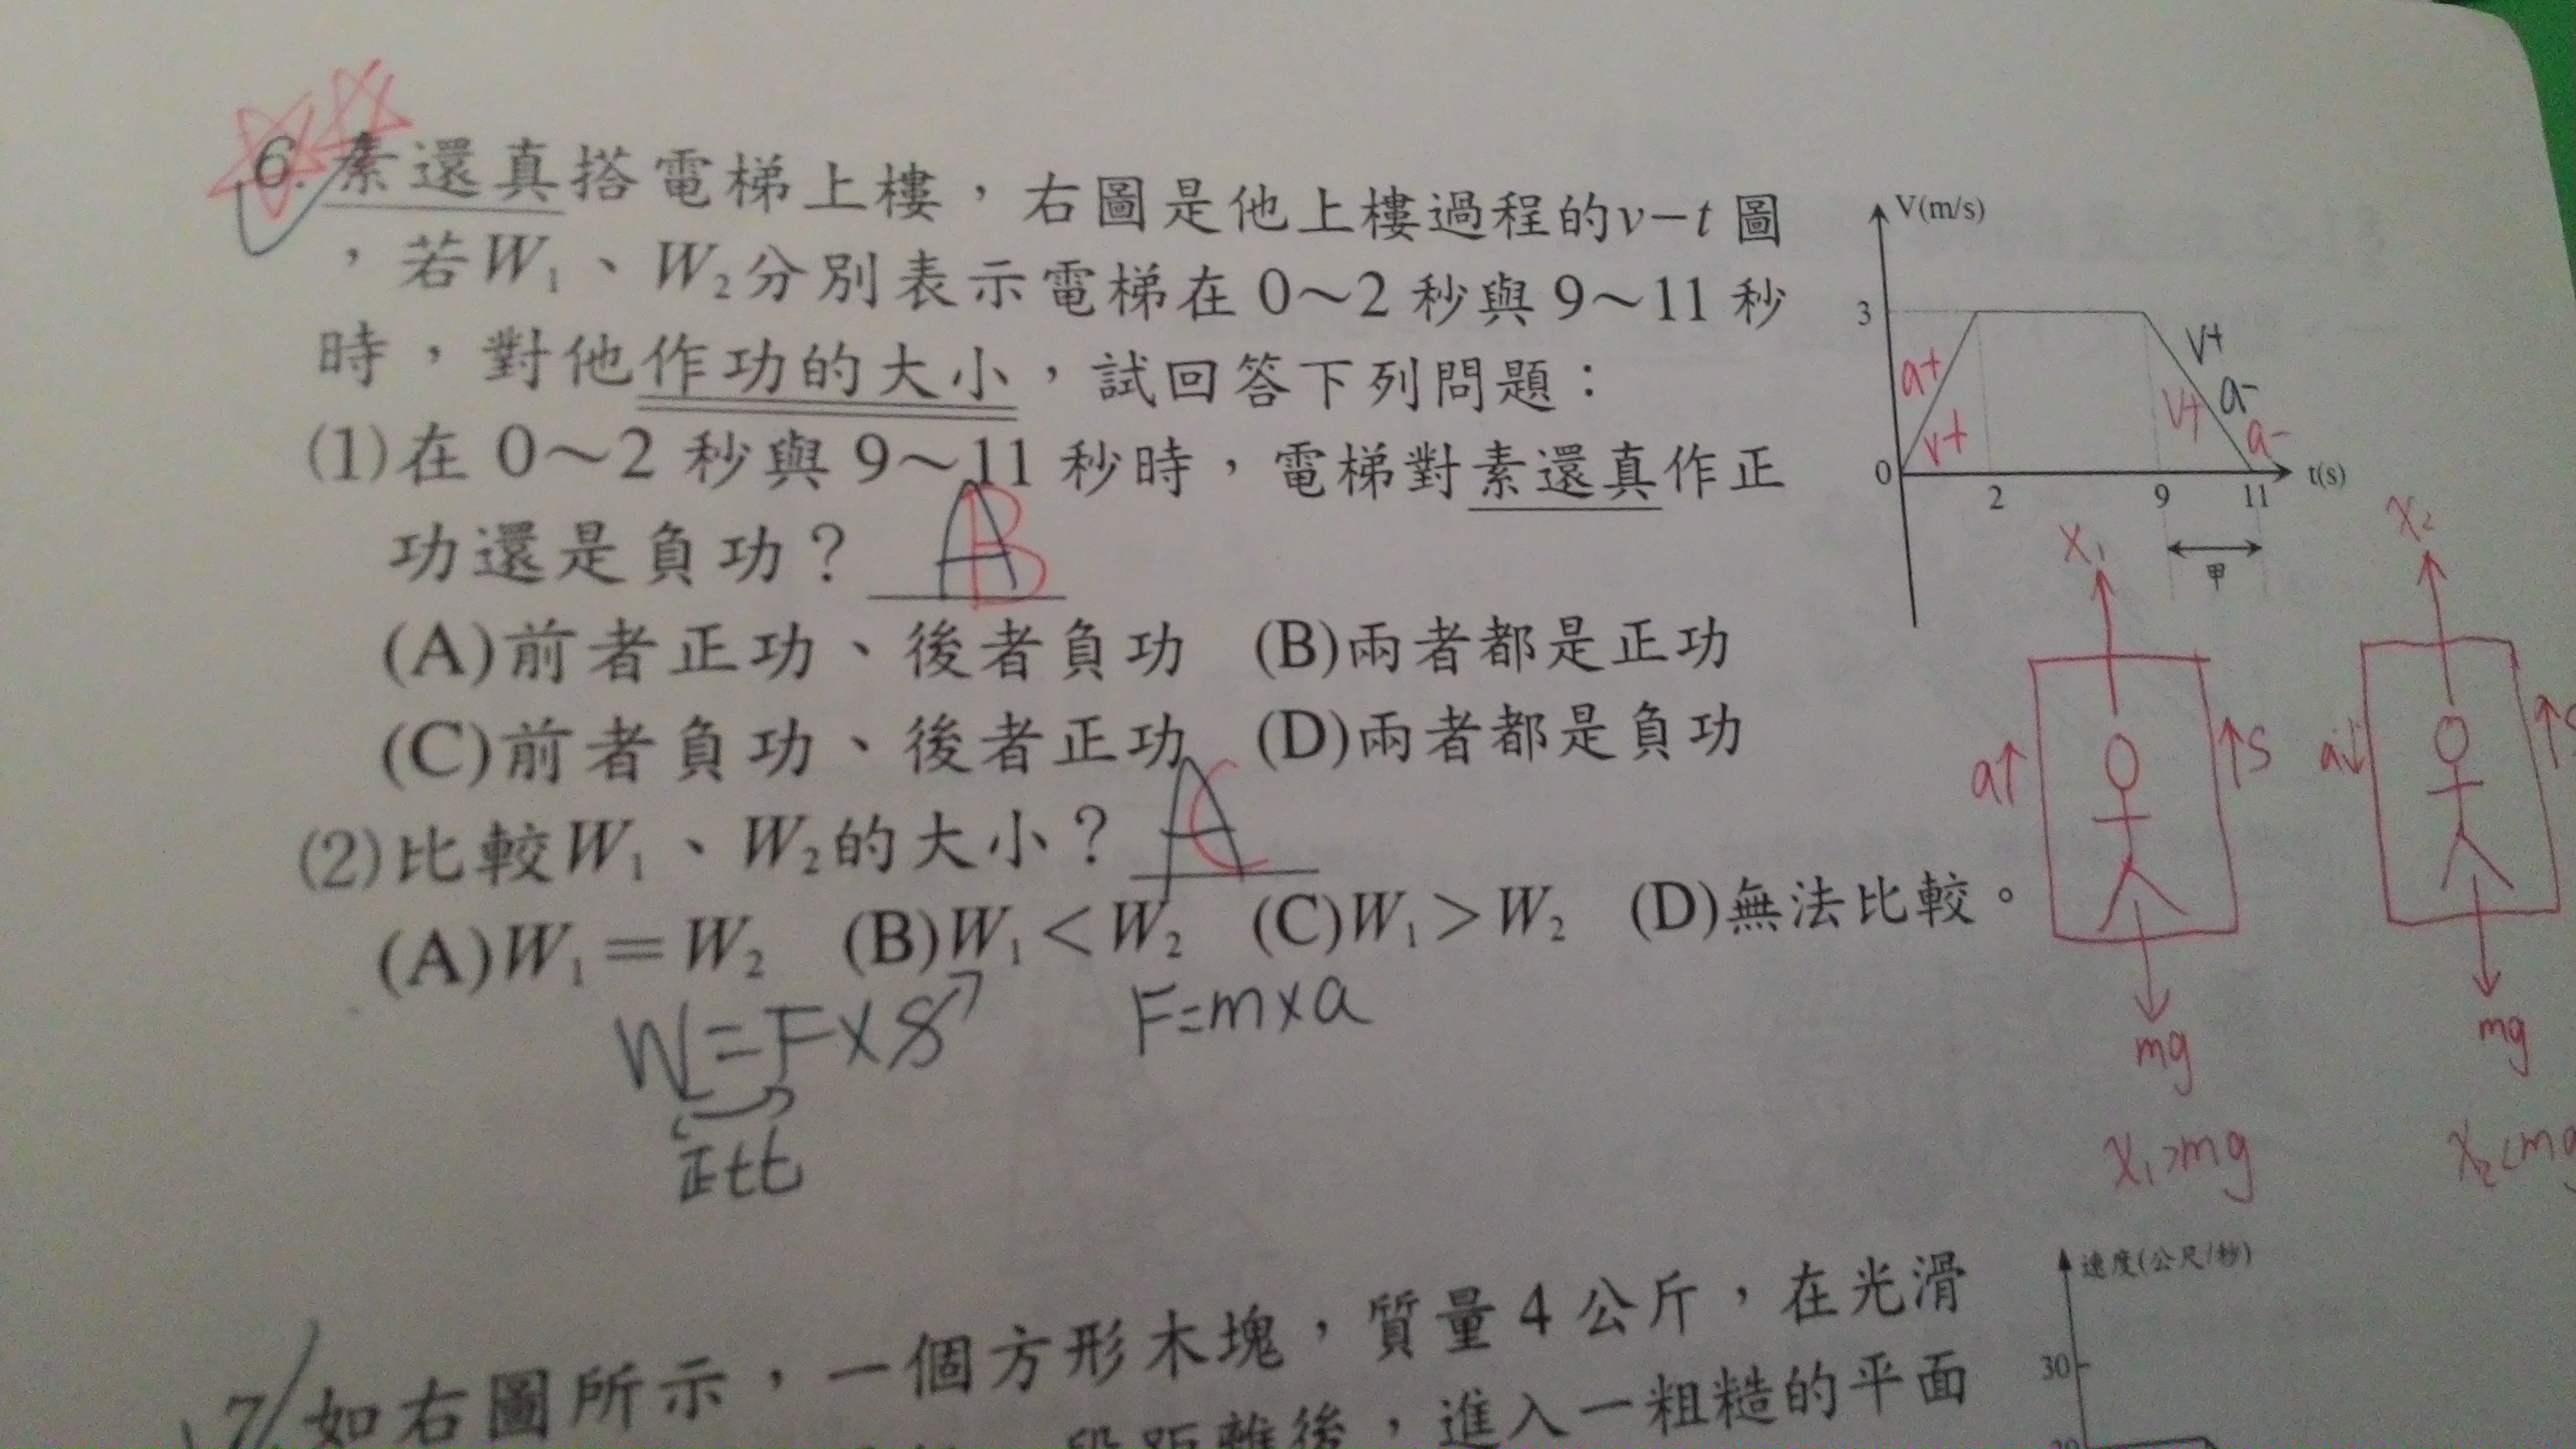 6. 素還真搭電梯上樓，右圖是他上樓過程的v－t 圖
，若W₁、W₂分別表示電梯在 0～2 秒與 9～11 秒
時，對他作功的大小，試回答下列問題：
(1)在 0～2 秒與 9～11 秒時，電梯對素還真作正
功還是負功？ A B
(A)前者正功、後者負功 (B)兩者都是正功
(C)前者負功、後者正功 (D)兩者都是負功
(2)比較W₁、W₂的大小？ A C
(A)W₁＝W₂ (B)W₁＜W₂ (C)W₁＞W₂ (D)無法比較。
W=F×S
F=m×a
正比
V(m/s)
3
a+
v+
V+
a-
V+
a-
0
2
9
11
t(s)
甲
X₁
a↑
↑S
mg
X₁>mg
X₂
a↓
↑S
mg
X₂<mg
7. 如右圖所示，一個方形木塊，質量 4 公斤，在光滑
段距離後，進入一粗糙的平面
速度(公尺/秒)
30
20